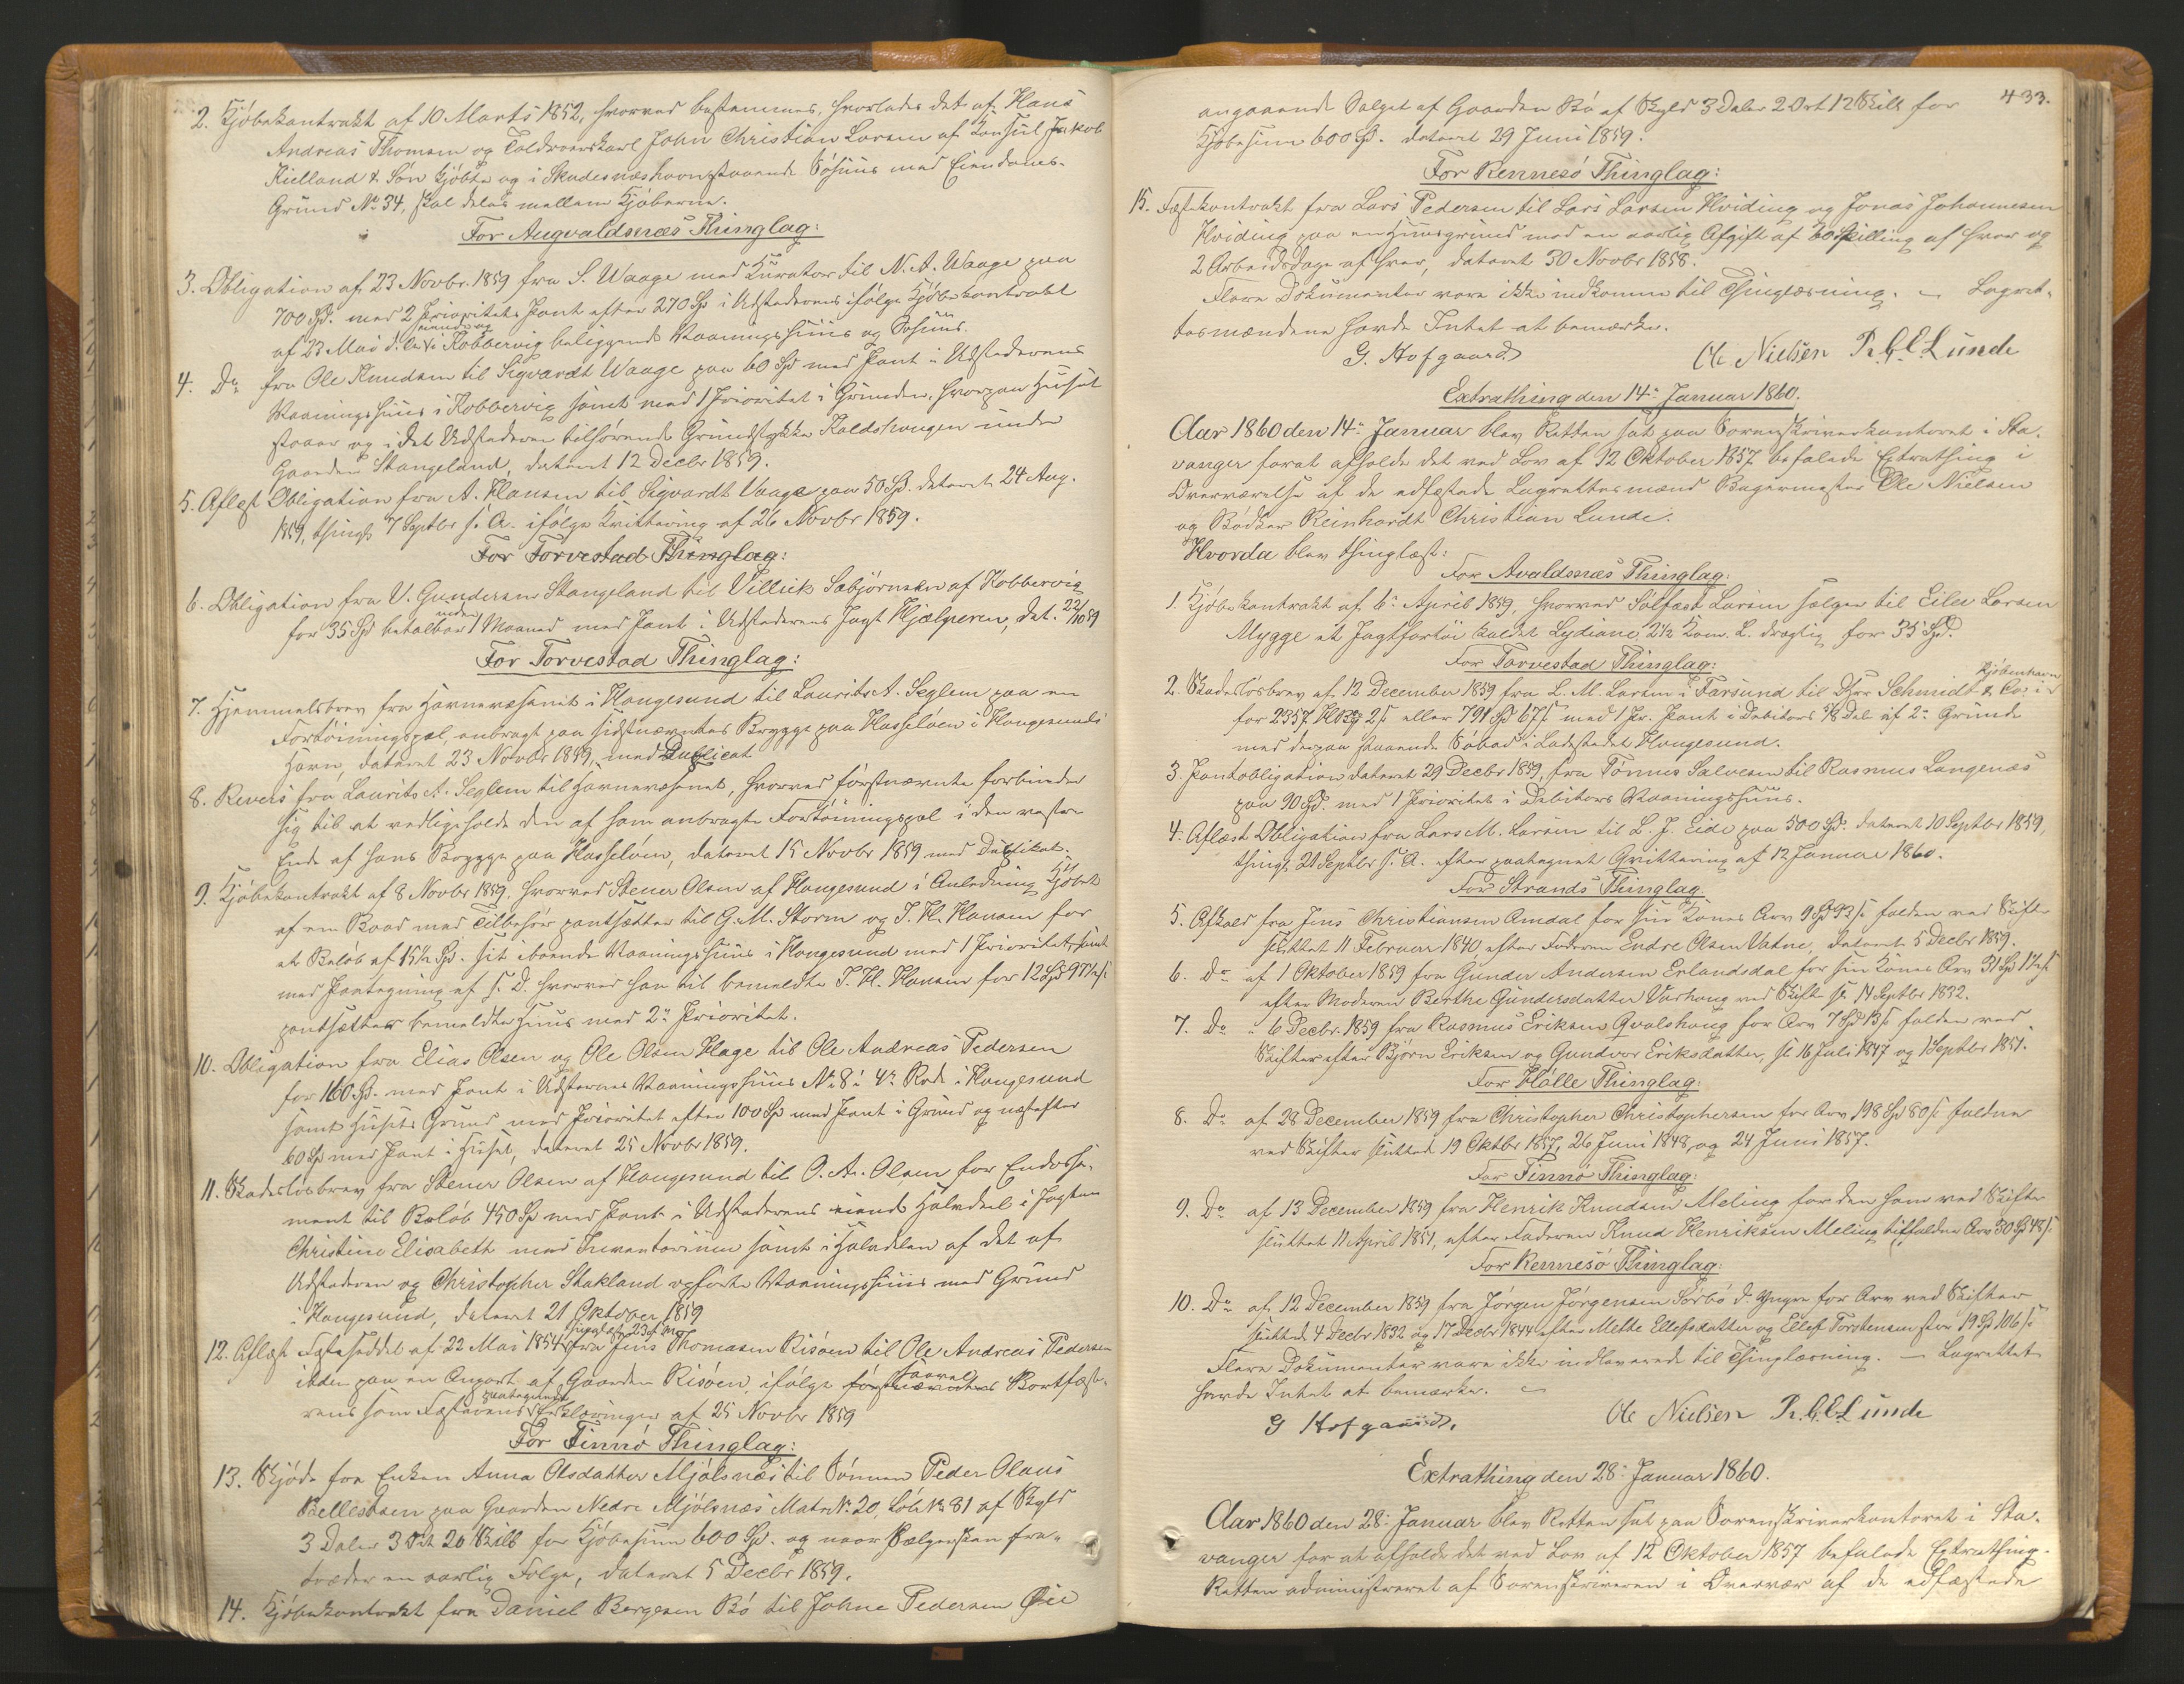 2. Kjøbekontrakt af 10 Marts 1852, hvorved bestemmes, hvorledes det af Hans
Andreas Thomsen og Toldroerskarl John Christian Larsen af Konsul Jakob
Kielland & Søn kjøbte og i Skudesnæshavn staaende Søhuus med Eiendoms-
Grund No 34, skal deles mellem Kjøberne.
For Augvaldsnæs Thinglag:
3. Obligation af 23 Novbr. 1859 fra S. Waage med Kurator til N. A. Waage paa
700 Spd. med 2 Prioritets Pant efter 270 Sp i Udstederens ifølge Kjøbekontrakt
af 23 Mai d. A. i Kobbervig beliggende Vaaningshuus og Søhuus.
4. Do fra Ole Knudsen til Sigvardt Waage paa 60 Spd med Pant i Udstederens
Vaaningshuus i Kobbervig samt med 1 Prioritet i Grunden, hvorpaa Huset
staaer og i det Udstederen tilhørende Grundstykke Koldshaugen under
Gaarden Stangeland, dateret 12 Decbr 1859.
5. Aflæst Obligation fra A. Hansen til Sigvardt Vaage paa 50 Spd. dateret 24 Aug.
1859, thingl. 7 Septbr s. A. ifølge Kvittering af 26 Novbr 1859.
For Torvestad Thinglag:
6. Obligation fra V. Gundersen Stangeland til Villiik Sabjørnsen af Kobbervig
for 35 Spd betalbar inden 1 Maaned med Pant i Udstederens Jagt Hjælperen, dat. 22/10 59
For Torvestad Thinglag:
7. Hjemmelsbrev fra Havnevæsenet i Haugesund til Laurits A. Seglem paa en
Fortøiningspæl, anbragt paa sidstnævntes Brygge paa Hasseløen i Haugesunds
Havn, dateret 23 Novbr 1859, med Duplicat
8. Revers fra Laurits A. Seglem til Havnevæsenet, hvorved førstnævnte forbinder
sig til at vedligeholde den af ham anbragte Fortøiningspæl i den vestre
Ende af hans Brygge paa Hasseløen, dateret 15 Novbr 1859 med Duplikat.
9. Kjøbekontrakt af 8 Novbr 1859, hvorved Stener Olsen af Haugesund i Anledning Kjøbet
af en Baad med Tilbehør pantsætter til G. M. Storm og T. H. Hansen for
et Beløb af 15½ Spd. sit iboende Vaaningshuus i Haugesund med 1 Prioritet, samt
med Paategning af s. D. hvorved han til bemeldte T. H. Hansen for 12 Spd
pantsætter bemeldte Huus med 2n Prioritet.
10. Obligation fra Elias Olsen og Ole Olsen Hage til Ole Andreas Pedersen
for 160 Sp. med Pant i Udstedernes Vaaningshuus No 8 i 4de Rode i Haugesund
samt Husets Grund med Prioritet efter 100 Sp med Pant i Grund og næstefter
60 Sp med Pant i Huset, dateret 25 Novbr 1859.
11. Skadesløsbrev fra Stener Olsen af Haugesund til O. A. Olsen for Endosse-
ment til Beløb 450 Sp med Pant i Udstederens eiende Halvdeel i Jagten
Christine Elisabeth med Inventarium samt i Halvdelen af det af
Udstederen og Christopher Stakland opførte Vaaningshuus med Grund
i Haugesund, dateret 21 Oktober 1859
12. Aflæst Fæsteseddel af 22 Mai 1854, thinglæst 23 s. M. fra Jens Thomasen Risøen til Ole Andreas Pedersen
ibden paa en Anpart af Gaarden Risøen, ifølge førstnævntes saavel Bortfæst-
rens som Fæsterens paategnede Erklæringer af 25 Novbr 1859
For Finnø Thinglag:
13. Skjøde fra Enken Anna Olsdatter Mjølsnæs til Sønnen Peder Olaus
Bellestsen paa Gaarden Nedre Mjølsnæs Matr. No 20, Løb No 81 af Skyld
3 Daler 3 Ort 20 Skill for Kjøbesum 600 Sp. og naar Sælgersken fra-
træder en aarlig Følge, dateret 5 Decbr 1859.
14. Kjøbekontrakt fra Daniel Bergesen Bø til Johne Pedersen Øie
433.
angaaende Salget af Gaarden Bø af Skyld 3 Daler 2 Ort 12 Skill for
Kjøbesum 600 Sp. dateret 29 Juni 1859.
For Rennesø Thinglag:
15. Fæstekontrakt fra Lars Pedersen til Lars Larsen Hviding og Jonas Johannesen
Hviding paa en Huusgrund med en aarlig Afgift af 60 Skilling af hver og
2 Arbeidsdage af hver, dateret 30 Novbr 1858.
Flere Dokumenter vare ikke indkomne til Thinglæsning. – Lagret-
tesmændene havde Intet at bemærke.
G. Hofgaard Ole Nielsen R. C. Lunde
Extrathing den 14de Januar 1860.
Aar 1860 den 14de Januar blev Retten sat paa Sorenskriverkontoret i Sta-
vanger forat afholde det ved Lov af 12 Oktober 1857 befalede Extrathing i
Overværelse af de edfæstede Lagrettesmænd Bagermester Ole Nielsen
og Bødker Reinhardt Christian Lunde.
Hvorda blev thinglæst:
For Avaldsnæs Thinglag:
1. Kjøbekontrakt af 6te April 1859, hvorved Solfæst Larsen sælger til Eilev Larsen
Mygge et Jagtfartøi kaldet Lydiane 2½ Kom. L. drægtig for 35 Spd.
For Torvestad Thinglag:
2. Skadesløsbrev af 12 December 1859 fra L. M. Larsen i Farsund til DHrr Schmidt & Co: i Kjøbenhavn
for 2357 2 s eller 791 Spd 67 s med 1 Pr. Pant i Debitors 5/8 Del af 2de Grunde
med derpaa staaende Søbod i Ladestedet Haugesund.
3. Pantobligation dateret 29 Decbr 1859, fra Tønnes Salvesen til Rasmus Langenæs
paa 90 Spd. med 1 Prioritet i Debitors Vaaningshuus.
4. Aflæst Obligation fra Lars M. Larsen til L. J. Eide paa 500 Spd. dateret 10 Septbr 1859,
thingl. 21 Septbr s. A. efter paategnet Qvittering af 12 Januar 1860.
For Strands Thinglag.
5. Afkald fra Jens Christiansen Amdal for sin Kones Arv 9 Spd 93 s falden ved Skifte
sluttet 11 Februar 1840, efter Faderen Endre Olsen Vatne, dateret 5 Decbr 1859.
6. Do af 1 Oktober 1859 fra Gunder Andersen Erlandsdal for sin Kones Arv 31 Spd
efter Moderen Berthe Gundersdatter Varhaug ved Skifte sl. 14 Septbr 1832.
7. Do " 6 Decbr. 1859 fra Rasmus Eriksen Qvalshaug for Arv 7 Spd 13 s falden ved
Skifter efter Bjørn Eriksen og Gundvor Eriksdatter, sl. 16 Juli 1847 og 1 Septbr 1851.
For Hølle Thinglag:
8. Do af 28 December 1859 fra Christopher Christophersen for Arv 198 Spd 80 s falden
ved Skifter sluttede 19 Oktbr 1857, 26 Juni 1848, og 24 Juni 1857.
For Finnø Thinglag:
9. Do af 13 December 1859 fra Henrik Knudsen Meling for den ham ved Skifte
sluttet 11 April 1851, efter Faderen Knud Henriksen Meling tilfaldne Arv 30 Spd 48 s.
For Rennesø Thinglag:
10. Do af 12 December 1859 fra Jørgen Jørgensen Sørbø d. Yngre for Arv ved Skifter
sluttede 4 Decbr 1832 og 17 Decbr 1844 efter Mette Ellefsdatter og Ellef Torstensen stor 19 Sp 106 s
Flere Dokumenter vare ikke indleverede til Thinglæsning. – Lagrettet
havde Intet at bemærke. –
G Hofgaard. Ole Nielsen R. C. Lunde
Extrathing den 28de Januar 1860.
Aar 1860 den 28de Januar blev Retten sat paa Sorenskriverkontoret i Sta-
vanger for at afholde det ved Lov af 12 Oktober 1857 befalede Extrathing.
Retten administreret af Sorenskriveren i Overvær af de edfæstede